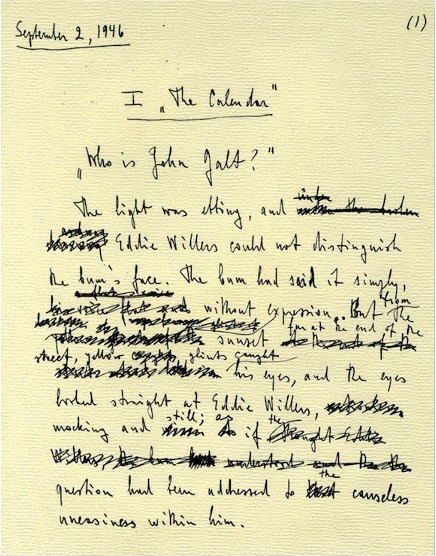 September 2, 1946
(1)
I „The Calendar"
„Who is John Galt?"
The light was ebbing, and
Eddie Willers could not distinguish
the bum's face. The bum had said it simply,
without expression. But from the
sunset far at the end of the
street, yellow glints caught
his eyes, and the eyes
looked straight at Eddie Willers,
mocking and still; as if the
question had been addressed to the causeless
uneasiness within him.